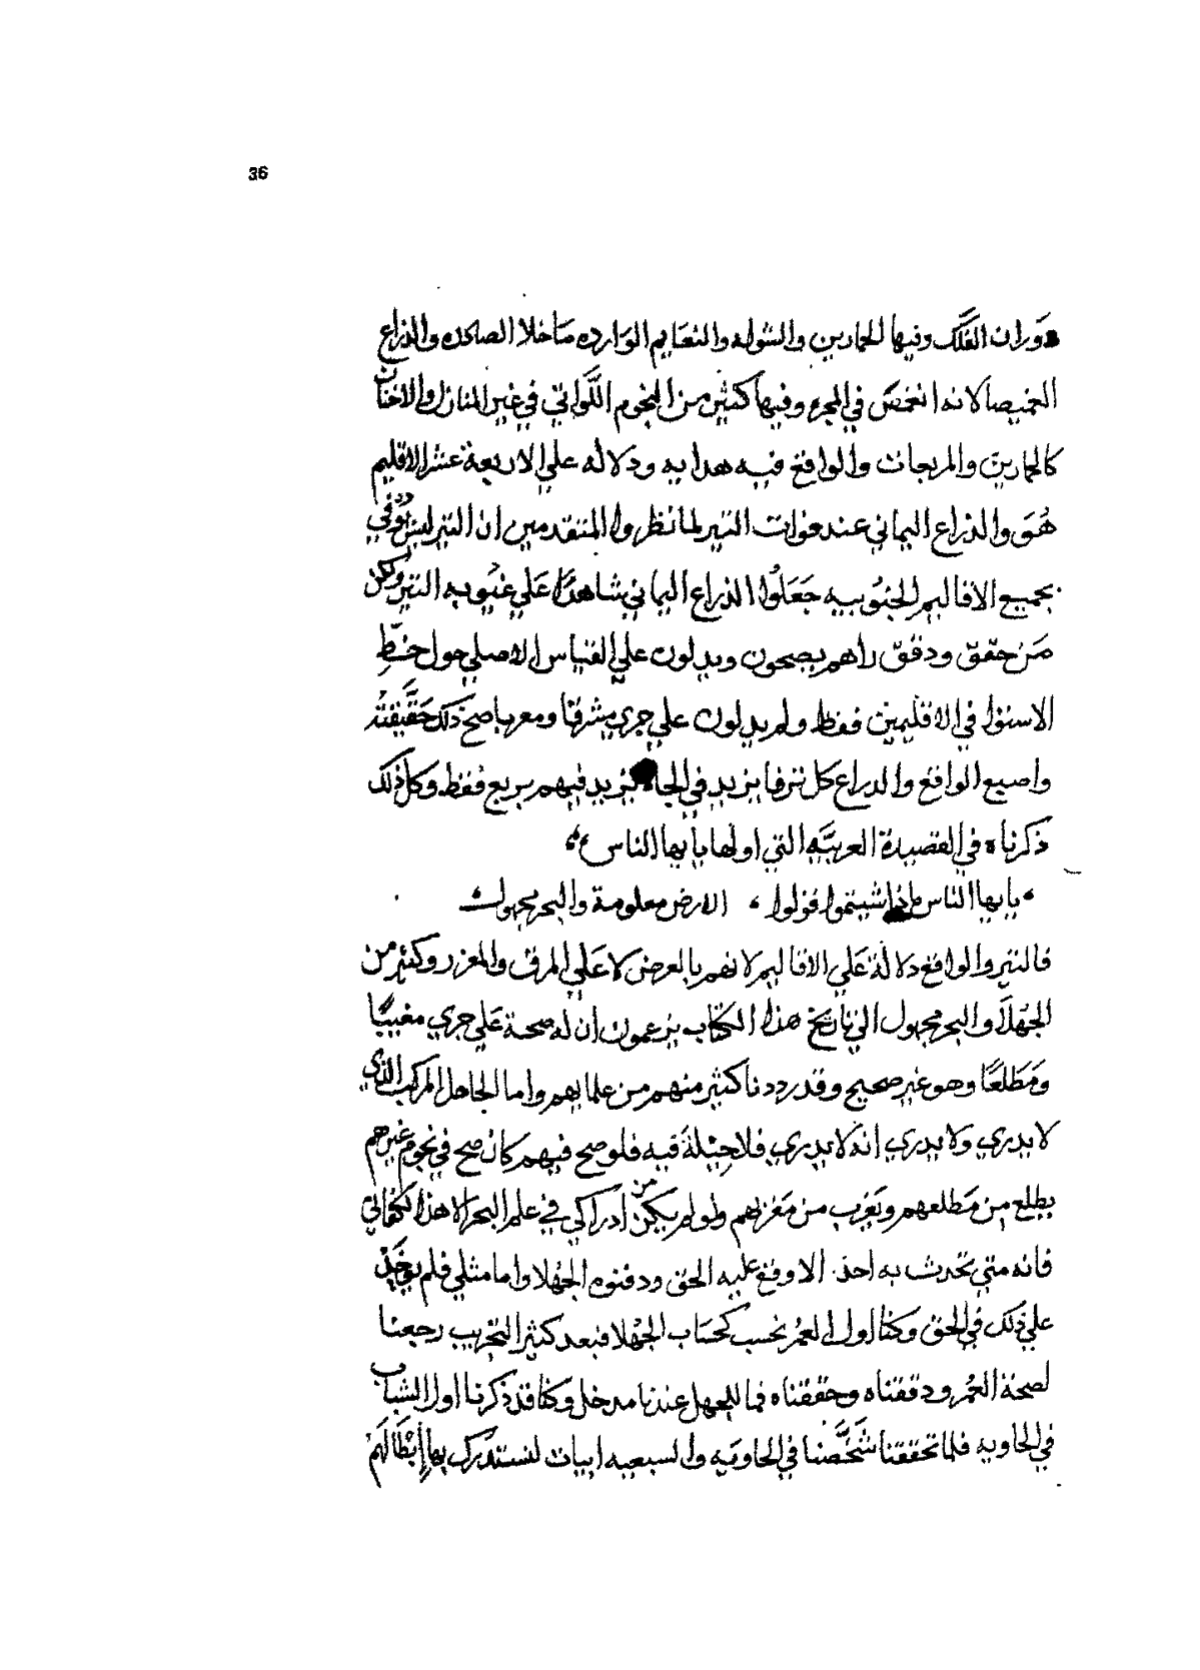 36
دَوران الفَلَك وفيها الحمارين والشوله والنعَايم الوَارده مَا خلا الصادره والذراع
الغميصا لانه انغمصَ في المجره وفيها كثير من النجوم اللَّواتي في غير المنازل والاخنان
كالحمارين والمربعات والواقع فيه هدايه ودلاله علي الاربعة عشر الاقليم
هُوَ والذراع اليماني عند فوات التير لما نظروا المتقدمين ان التير ليس يُوفي
بجميع الاقاليم الجنُوبيه جَعَلُوا الذراع اليماني شاهدًا عَلي غيُوبه التير ولكن
مَن حقق ودقق راهم يصحون ويدلون علي القياس الاصلي حول خطّ
الاستوا في الاقليمين فقط ولم يدلون علي جري مشرقا ومغربا صح ذلك حَقَّيقتُه
واصبع الواقع والذراع كل ترفا يزيد في الجاه يزيد فيهم بربع فقط وكل ذلك
ذكرناه في القصيدة العربيَّه التي اولها يا ايها الناس
يا ايها الناس ماذا شيتموا قولوا ، الارض معلومة والبحر مجهول
فالتير والواقع دلالة عَلي الاقاليم لانهم بالعرض لا عَلي المرق والمغزر وكثير من
الجهلا والبحر مجهول الي تاريخ هذا الكتاب يزعمون ان له صحة عَلي جري مغيبًا
ومَطَلعًا وهو غير صحيح وقد رددنا كثير منهم من علمايهم واما الجاهل المركب الذي
لا يدري ولا يدري انه لا يدري فلا حِيلةَ فيه فلو صح فيهم كان صح في نجوم غيرهم
يطلع من مَطلعهم ويَغرب من مَغربهم ولو لم يكن من ادراكي في علم البحر الا هذا لكفاني
فانه متي تحدث به احد الا وقع عليه الحق ودفنوه الجُهلا واما مثلي فلم يوخَذ
علي ذلك في الحق وكنا اول العمُر نحسب كحسَاب الجهلا فبعد كثير التجريب رجعنا
لصحة العمُر ودققناه وحققناه فما للجهل عندنا مدخل وكنا قد ذكرنا اول الشباب
في الحاويه فلما تحققنا في الحاويَه والسبعيه ابيات لنستدرك بها إبْطَالَهُمْ